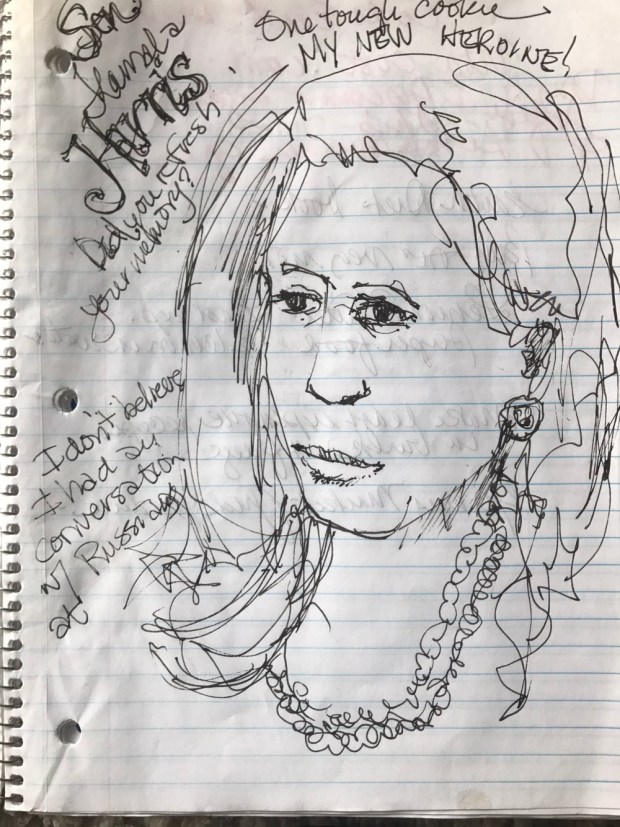 One tough cookie
MY NEW HEROINE!
Sen.
Kamala
Harris
Did you refresh
your memory?
I don't believe
I had any
conversation
w/ Russians